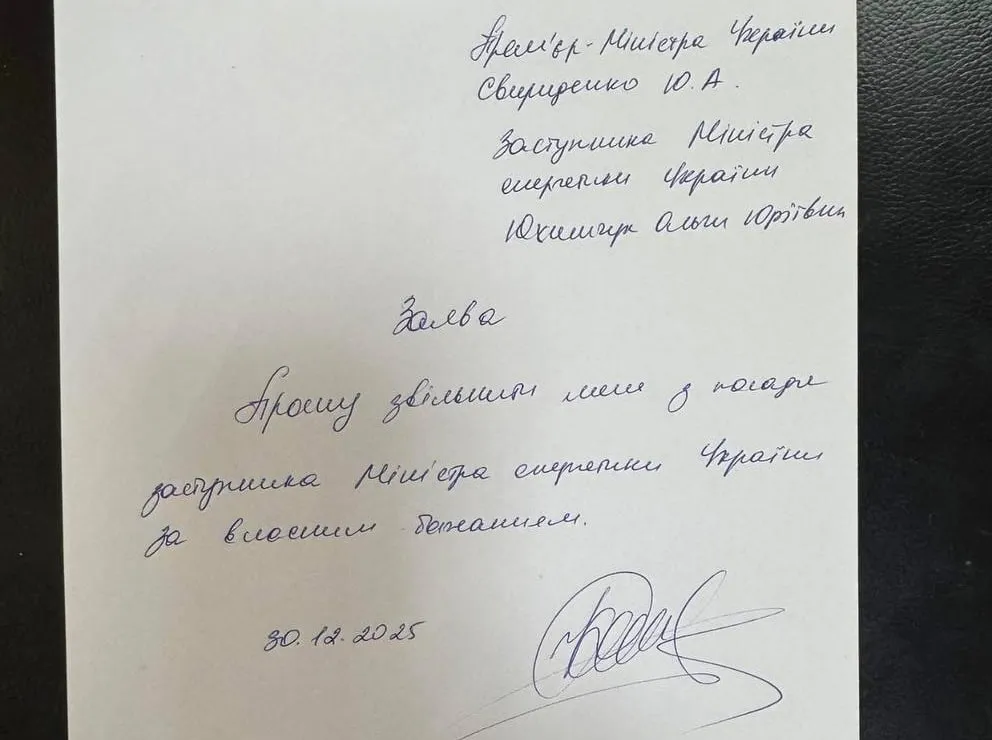 Прем'єр-Міністра України
Свириденко Ю.А.
Заступника Міністра
енергетики України
Юхимчук Ольги Юріївни
Заява
Прошу звільнити мене з посади
заступника Міністра енергетики України
за власним бажанням.
30.12.2025